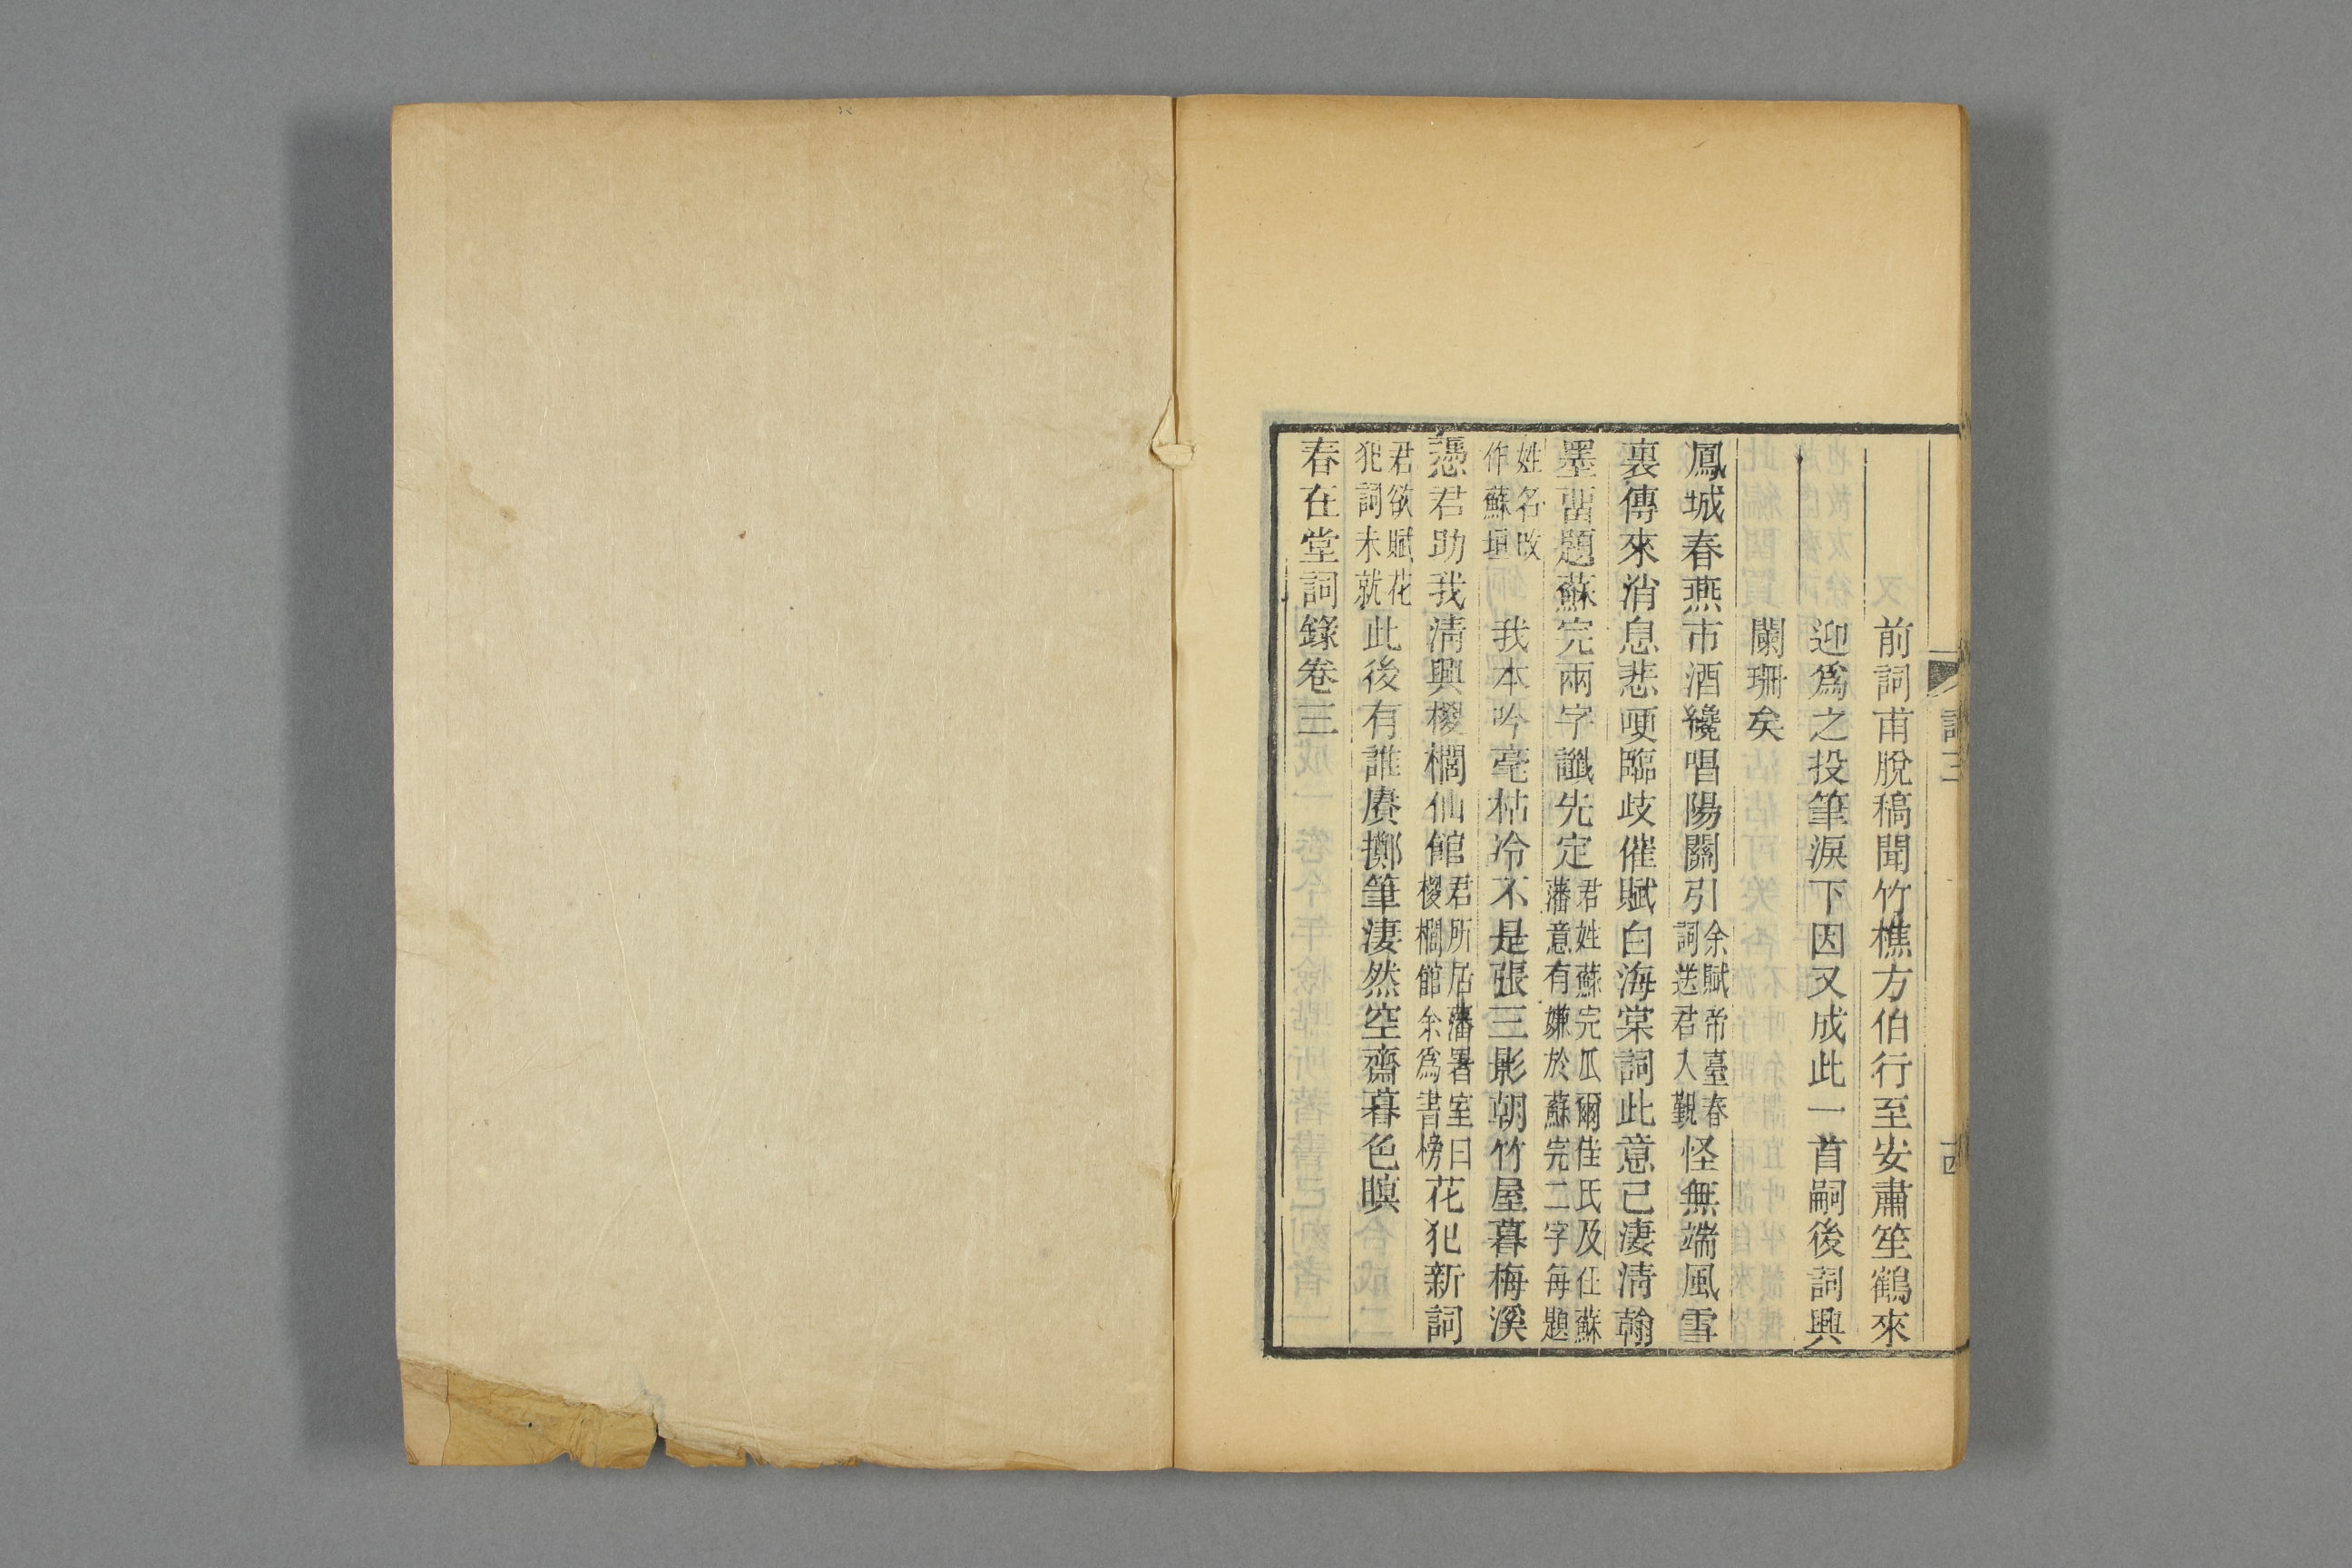 前詞甫脫稿聞竹樵方伯行至安肅笙鶴來
迎爲之投筆淚下因又成此一首嗣後詞興
闌珊矣
鳳城春燕市酒纔唱陽關引余賦帝臺春詞送君入覲怪無端風雪
裏傳來消息悲哽臨歧催賦白海棠詞此意已淒清翰
墨畱題蘇完兩字讖先定君姓蘇完瓜爾佳氏及任蘇藩意有嫌於蘇完二字每題
姓名改作蘇垣我本吟毫枯冷不是張三影朝竹屋暮梅溪
憑君助我清興椶櫚仙館君所居藩署室曰椶櫚館余爲書榜花犯新詞
君欲賦花犯詞未就此後有誰賡擲筆淒然空齋暮色暝
春在堂詞錄卷三